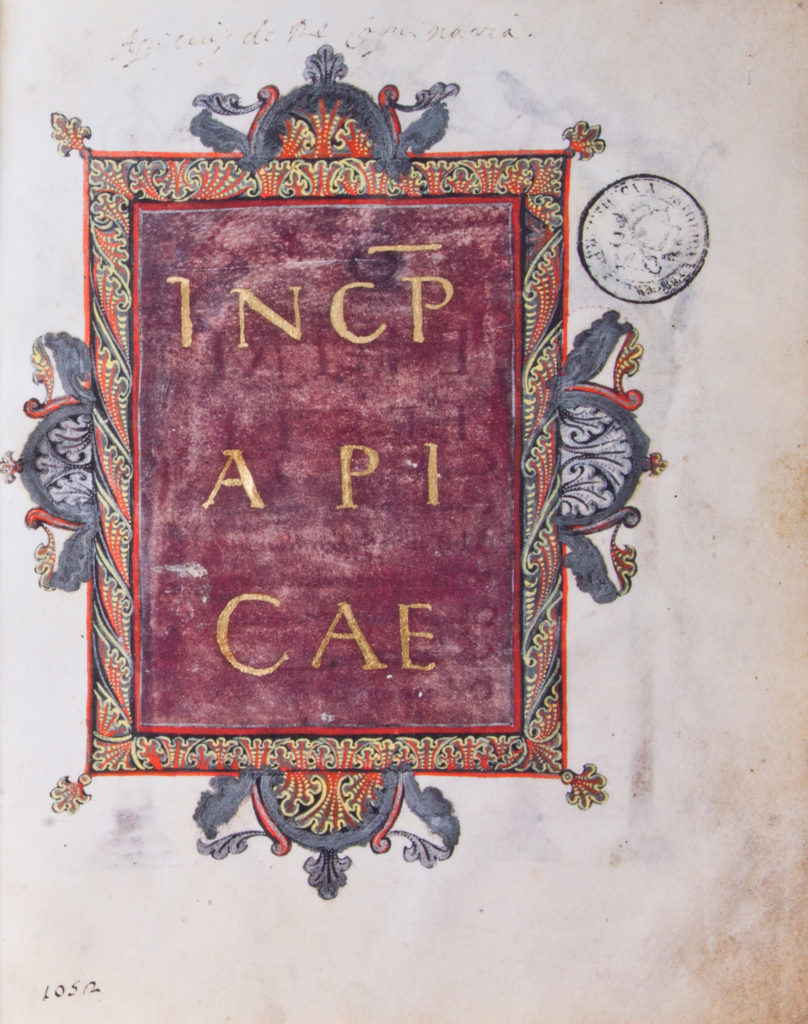 Apicius de Re Coquinaria.
INCP̅
API
CAE
1052